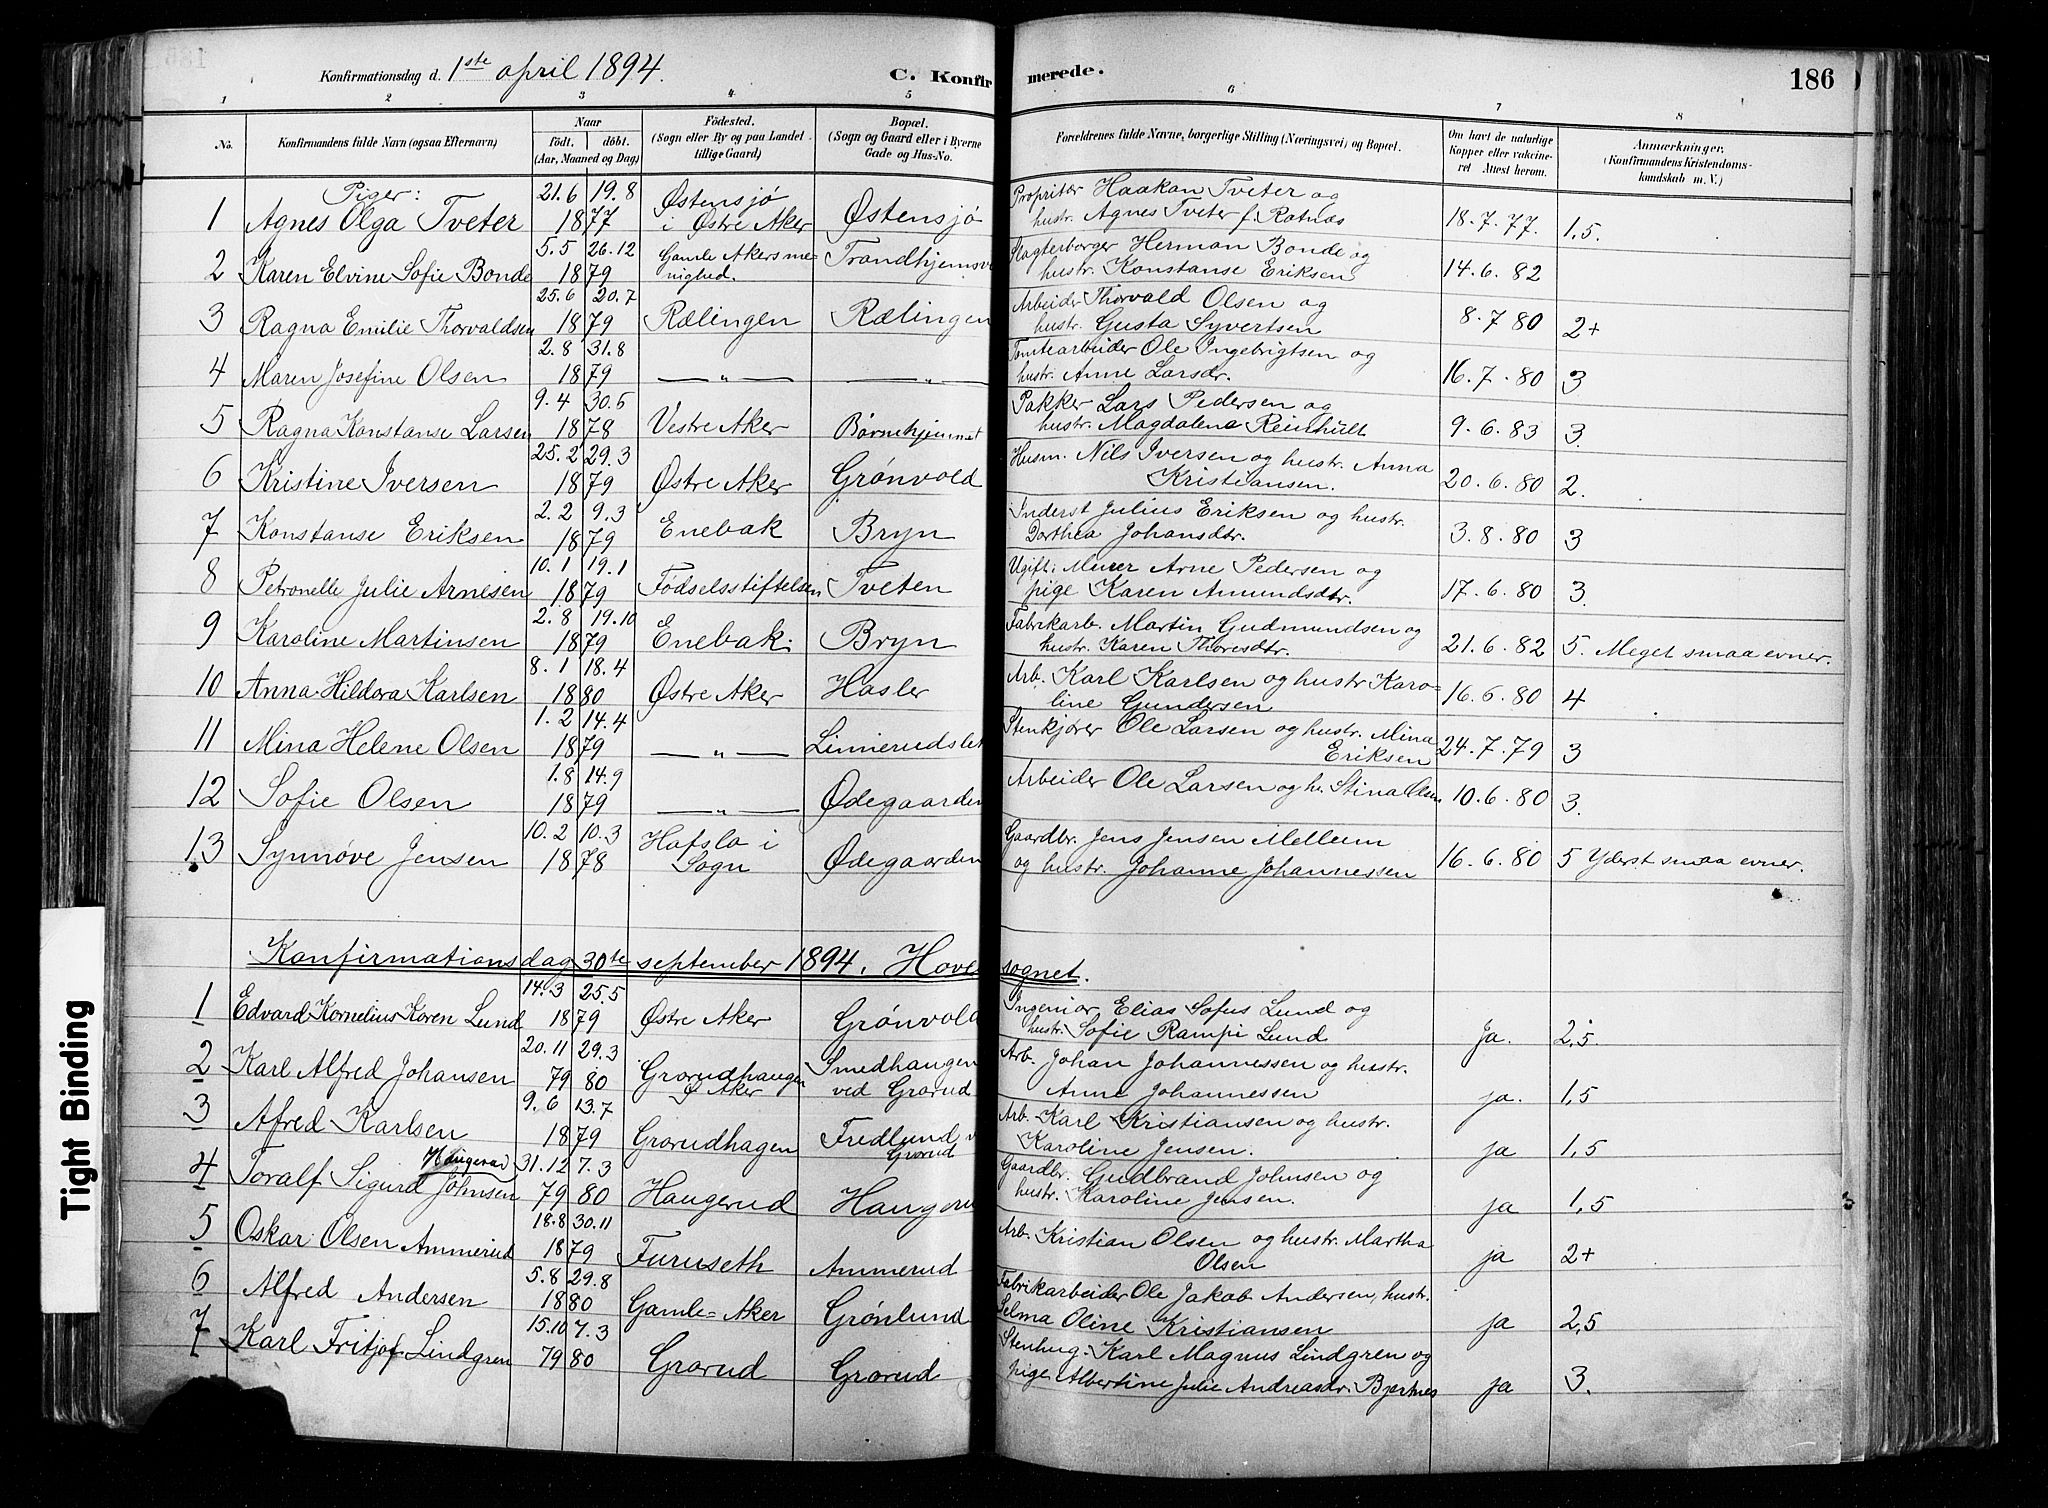 Konfirmationsdag d. 1ste april 1894. C. Konfirmerede. 186
1 2 3 4 5 6 7 8
No. Konfirmandens fulde Navn (ogsaa Efternavn) Naar født. døbt. (Aar, Maaned og Dag) Fødested. (Sogn eller By og paa Landet tillige Gaard) Bopæl. (Sogn og Gaard eller i Byerne Gade og Hus-No. Forældrenes fulde Navne, borgerlige Stilling (Næringsvei) og Bopæl. Om havt de naturlige Kopper eller vakcineret. Attest herom. Anmærkninger. (Konfirmandens Kristendomskundskab m. V.)
Piger:
1 Agnes Olga Tveter 21.6 19.8 1877 Østensjø i Østre Aker Østensjø Propritær Haakon Tveter og hustr. Agnes Tveter f. 18.7.77. 1,5.
2 Karen Elvine Sofie Bonde 5.5 26.12 1879 Gamle Akers menighed. Trondhjemsv Slagterborger Herman Bonde og hustr. Konstanse Eriksen 14.6.82
3 Ragna Emilie Thorvaldsen 25.6 20.7 1879 Rælingen Rælingen Arbeider Thorvald Olsen og hustr. Gusta Syvertsen 8.7 80 2+
4 Maren Josefine Olsen 2.8 31.8 1879 — „ — — „ — Tomtearbeider Ole Ingebrigtsen og hustr. Anne Larsdr. 16.7.80 3
5 Ragna Konstanse Larsen 9.4 30.5 1878 Vestre Aker Børnehjemmet Pakker Lars Pedersen og hustr. Magdalena Reinhült 9.6.83 3.
6 Kristine Iversen 25.2 29.3 1879 Østre Aker Grønvold Husm. Nils Iversen og hustr. Anna Kristiansen. 20.6.80 2.
7 Konstanse Eriksen 2.2 9.3 1879 Enebak Bryn Inderst Julius Eriksen og hustr. Dorthea Johansdtr. 3.8.80 3
8 Petronelle Julie Arnesen 10.1 19.1 1879 Fødselsstiftelsen Tveten Ugift: Murer Arne Pedersen og pige Karen Amundsdtr. 17.6.80 3.
9 Karoline Martinsen 2.8 19.10 1879 Enebak. Bryn Fabrikarb. Martin Gudmundsen og hustr. Karen Thoresdtr. 21.6.82 5. Meget smaa evner.
10 Anna Hildora Karlsen 8.1 18.4 1880 Østre Aker Hasler Arb. Karl Karlsen og hustr Karoline Gundersen 16.6.80 4
11 Mina Helene Olsen 1.2 14.4 1879 — „ — Linnerudslet Stenkjører Ole Larsen og hustr. Mina Eriksen 24.7.79 3
12 Sofie Olsen 1.8 14.9 1879 — „ — Ødegaarden Arbeider Ole Larsen og h. Stina Olsen 10.6.80 3.
13 Synnøve Jensen 10.2 10.3 1878 Hafslo i Sogn Ødegaarden Gaardbr. Jens Jensen Mellem og hustr. Johanne Johannessen 16.6.80 5 Yderst smaa evner.
Konfirmationsdag 30te september 1894. Hovedsognet.
1 Edvard Kornelius Koren Lund 14.3 25.5 1879 Østre Aker Grønvold Ingeniør Elias Sofus Lund og hustr. Sofie Rampi Lund Ja. 2,5.
2 Karl Alfred Johansen 20.11 29.3 79 80 Grorudhaugen Ø Aker Smedhaugen ved Grorud Arb. Johan Johannessen og hustr. Anne Johannessen ja. 1,5
3 Alfred Karlsen 9.6 13.7 1879 Grorudhagen Fredlund v Grorud Arb. Karl Kristiansen og hustr. Karoline Jensen. ja 1,5
4 Toralf Sigurd Haugerud Johnsen 31.12 7.3 79 80 Haugerud Haugeru Gaardbr. Gudbrand Johnsen og hustr. Karoline Jensen. ja 1,5
5 Oskar Olsen Ammerud 18.8 30.11 1879 Furuseth Ammerud Arb. Kristian Olsen og hustr. Martha Olsen ja 2+
6 Alfred Andersen 5.8 29.8 1880 Gamle=Aker Grønlund Fabrikarbeider Ole Jakob Andersen, hustr. Selma Oline Kristiansen ja 2,5
7 Karl Fritjof Lindgren 15.10 7.3 79 80 Grorud Grorud Stenhug. Karl Magnus Lindgren og pige Albertine Julie Andreasdr. Bjerknes ja 3.
Tight Binding